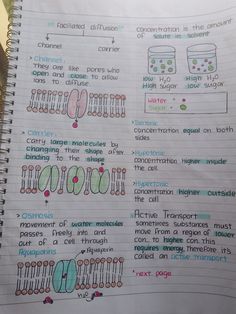 facilated diffusion
channel
carrier
Channel:
They are like pores who
open and close to allow
ions to diffuse
Carrier:
carry large molecules by
changing their shape after
binding to the shape
Osmosis
movement of water molecules
passes freely into and
out of a cell through
Aquaporins
Aquaporin
H₂O
concentration is the amount
of solute in solvent
low H₂O
high sugar
high H₂O
low sugar
water
sugar
Isotonic
concentration equal on both
sides
Hypotonic
concentration higher inside
the cell
Hypertonic
concentration higher outside
the cell
Active Transport
sometimes substances must
move from a region of lower
con. to higher con. this
requires energy, therefore it's
called an active transport
*next page